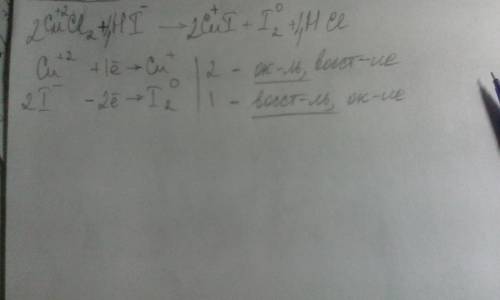 2Cu⁺²Cl₂ + 4HI⁻ → 2Cu⁺I + I₂⁰ + 4HCl
Cu⁺² +1ē → Cu⁺ | 2 - ок-ль, восст-ие
2I⁻ -2ē → I₂⁰ | 1 - восст-ль, ок-ие